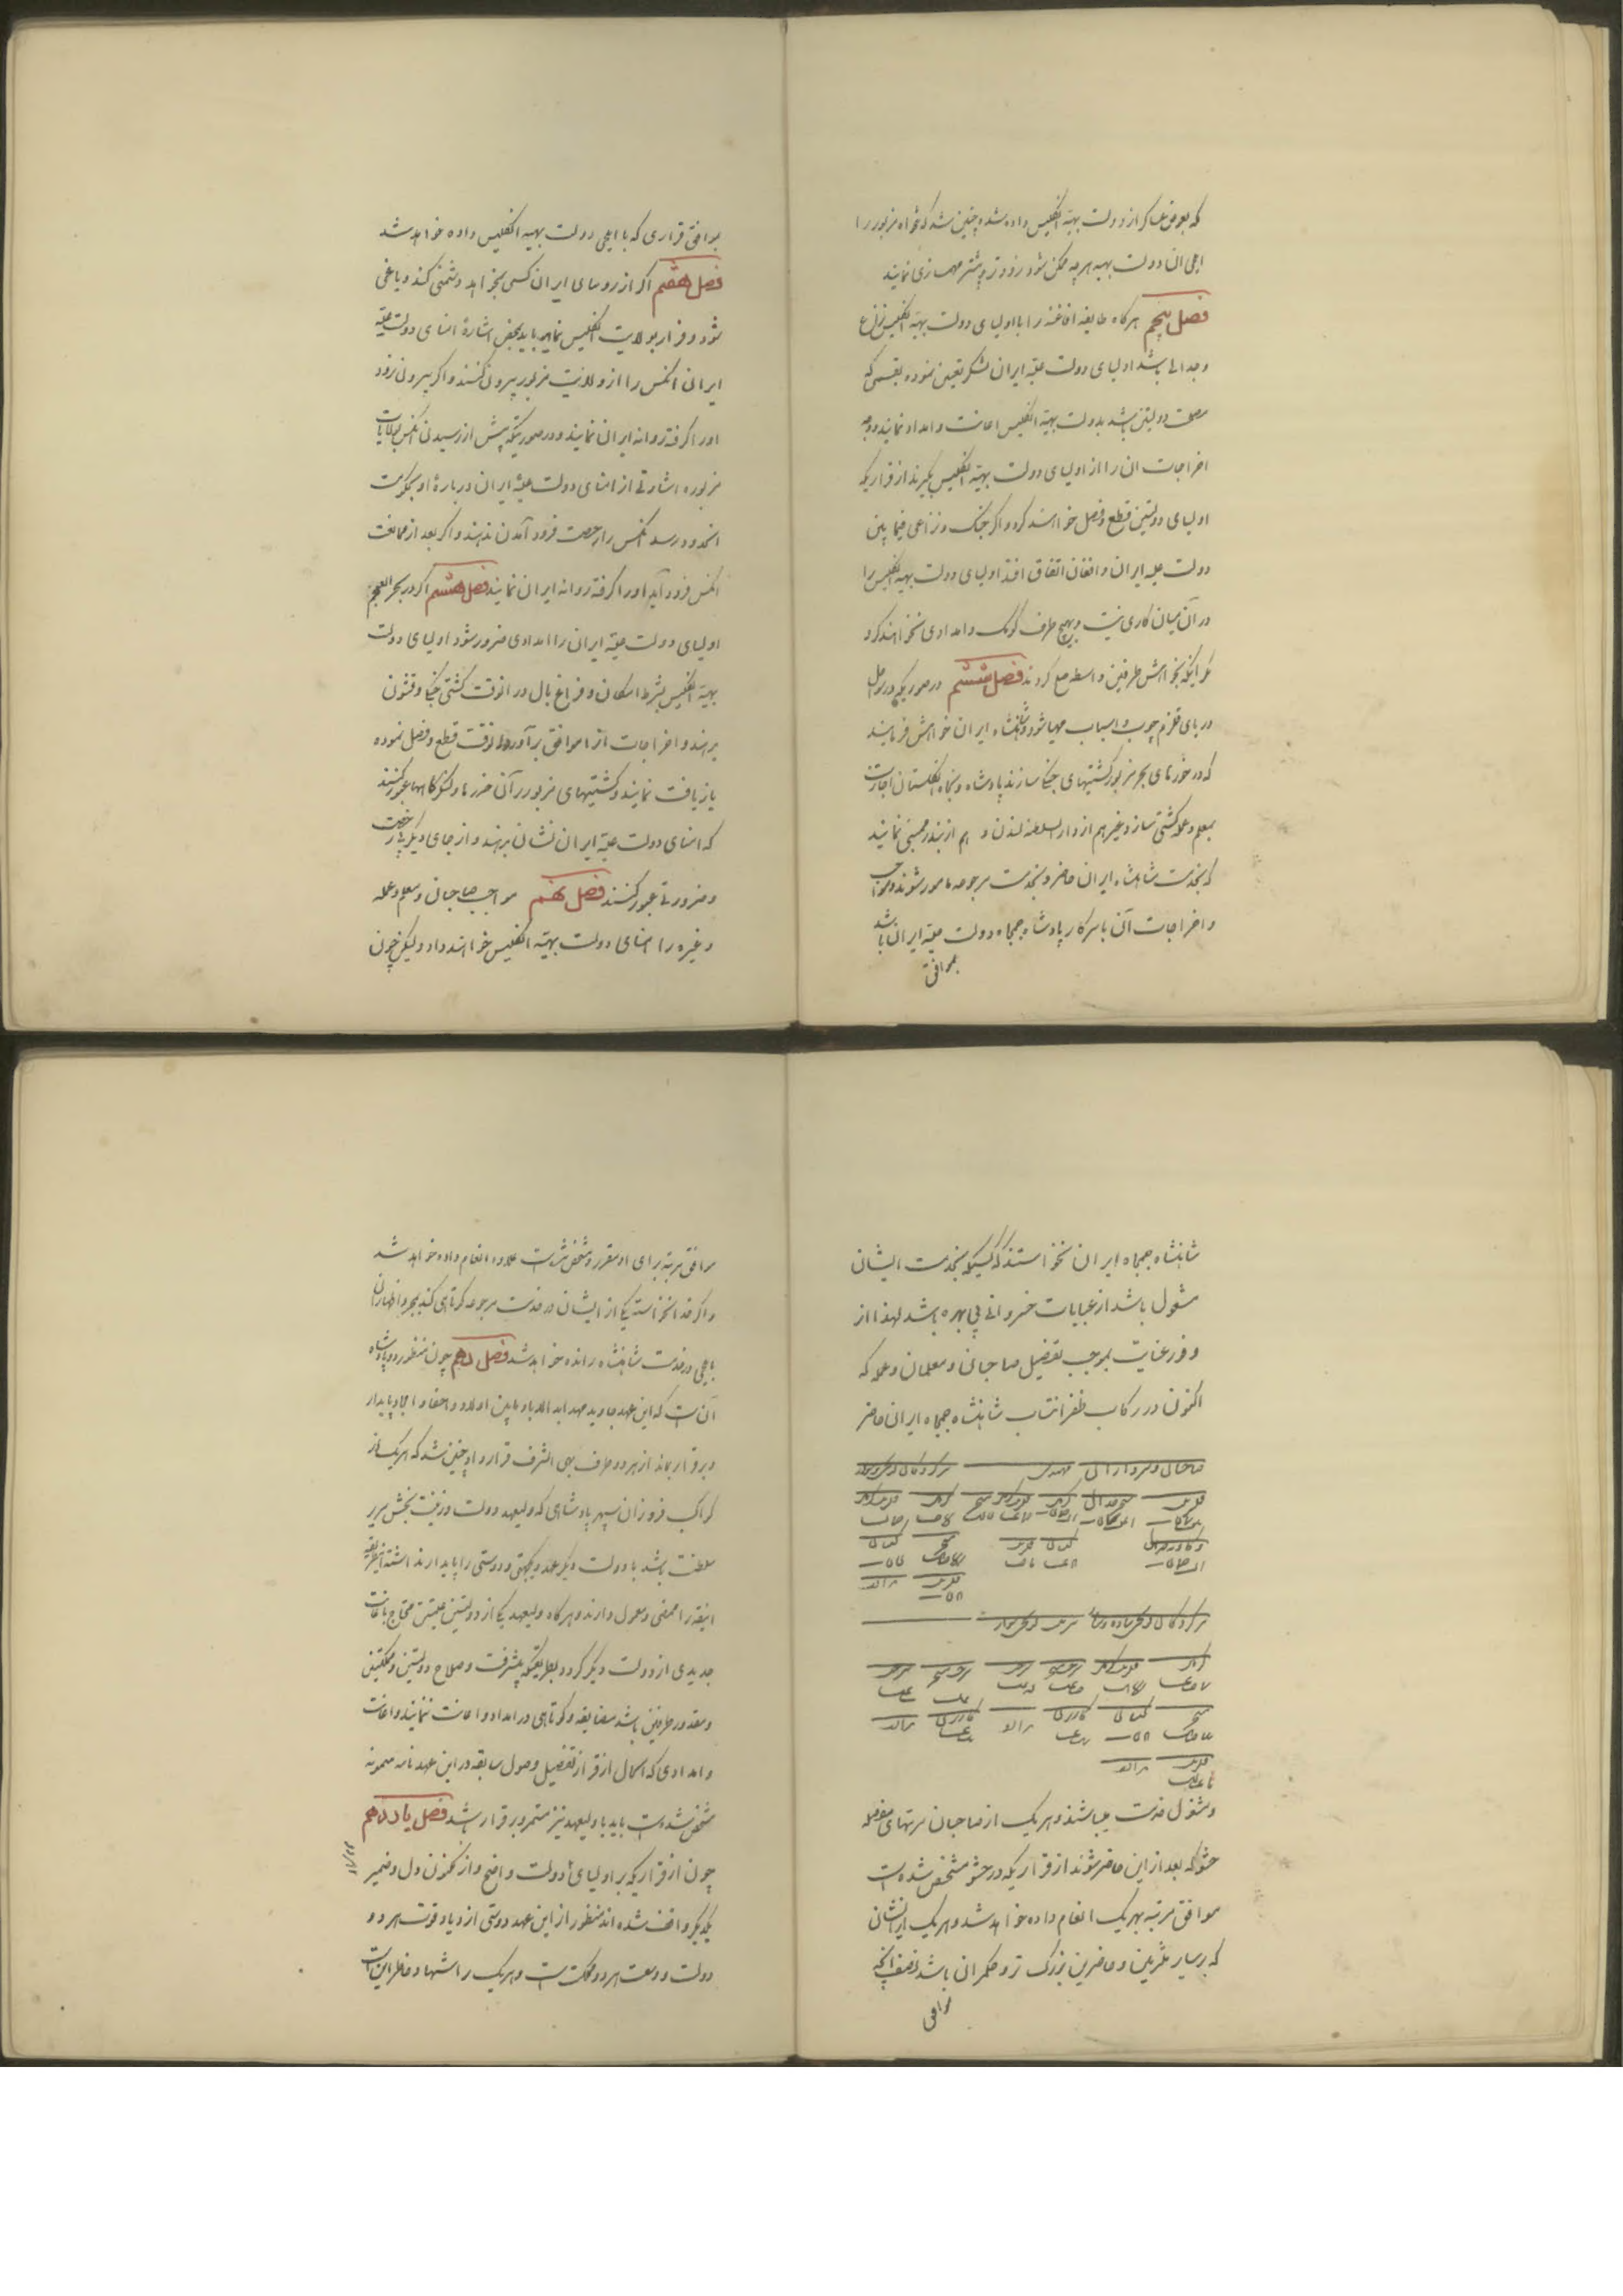 که بعوض عساکر از دولت بهیه انگلیس داده شده چنین شد که تنخواه مزبور را
ایلچی آن دولت بهیه هرچه ممکن شود زودتر و پیشتر مهمسازی نمایند
فصل پنجم هرگاه طایفه افاغنه را با اولیای دولت بهیه انگلیس نزاع
و جدالی باشد اولیای دولت علیه ایران لشکر تعیین نموده بقسمی که
مصلحت دولتین باشد بدولت بهیه انگلیس اعانت و امداد نمایند و وجه
اخراجات آن را از اولیای دولت بهیه انگلیس بگیرند از قراریکه
اولیای دولتین قطع و فصل خواهند کرد و اگر جنگ و نزاعی فیمابین
دولت علیه ایران و افغان اتفاق افتد اولیای دولت بهیه انگلیس را
در آن میان کاری نیست و بهیچ طرف کومک و امدادی نخواهند کرد
مگر اینکه بخواهش طرفین واسطه صلح گردند فصل ششم در صورتیکه در سواحل
دریای قلزم چوب و اسباب مهیا شود و شاهنشاه ایران خواهش فرمایند
که در خورهای بحر مزبور کشتیهای جنگی سازند پادشاه ذیجاه انگلستان اجازت
بمعلم و عمله کشتی ساز و غیرهم از دارالسلطنه لندن و هم از بندر ممبئی نمایند
که بخدمت شاهنشاه ایران حاضر و بخدمت مرجوعه مامور شوند و مواجب
و اخراجات آن با سرکار پادشاه جمجاه دولت علیه ایران باشد
بموافق
بموافق قراری که با ایلچی دولت بهیه انگلیس داده خواهد شد
فصل هفتم اگر از روسای ایران کسی بخواهد دشمنی کند و یاغی
شود و فرار بولایت انگلیس نماید باید بمحض اشارهٔ امنای دولت علیه
ایران آنکس را از ولایت مزبور بیرون کنند و اگر بیرون نرود
او را گرفته روانه ایران نمایند و در صورتیکه پیش از رسیدن آنکس بولایت
مزبوره اشارتی از امنای دولت علیه ایران دربارهٔ او بحکومت
آنحدود رسد آنکس را رخصت فرود آمدن ندهند و اگر بعد از ممانعت
آنکس فرود آید او را گرفته روانه ایران نمایند فصل هشتم اگر در بحر العجم
اولیای دولت علیه ایران را امدادی ضرور شود اولیای دولت
بهیه انگلیس بشرط امکان و فراغ بال در آنوقت کشتی جنگی و قشون
بدهند و اخراجات آنرا موافق برآورد آنوقت قطع و فصل نموده
بازیافت نمایند و کشتیهای مزبور بر آن خورها و لنگرگاهها عبور کنند
که امنای دولت علیه ایران نشان بدهند و از جای دیگر بی رخصت
و ضرورتی عبور نکنند فصل نهم مواجب صاحبان و معلم و عمله
و غیره را امنای دولت بهیه انگلیس خواهند داد ولیکن چون
شاهنشاه جمجاه ایران نخواستند که کسیکه بخدمت ایشان
مشغول باشد از عنایات خسروانی بی بهره باشد لهذا از
وفور عنایت بموجب تفصیل صاحبان و معلمان و عمله که
اکنون در رکاب ظفر انتساب شاهنشاه جمجاه ایران حاضر
صاحبان و سرداران
مهندس
و مشغول خدمت میباشند و هریک از صاحبان مرتبهای مفصله
حشو که بعد از این حاضر شوند از قراریکه در حشو مشخص شده است
موافق مرتبه بهریک انعام داده خواهد شد و هریک از ایشان
که بر سایر ملتزمین و حاضرین بزرگ تر و حکمران باشد نصف آنچه
موافق
موافق مرتبه برای او مقرر و مشخص شده است علاوه انعام داده خواهد شد
و اگر خدانخواسته یکی از ایشان در خدمت مرجوعه کوتاهی کند بمجرد اظهار آن
بایلچی از خدمت شاهنشاه رانده خواهد شد فصل دهم چون منظور دو پادشاه
آن است که این عهد جاوید مهد ابد الاباد مابین اولاد و احفاد و امجاد پایدار
و برقرار بماند از هر دو طرف بهی الشرف قرارداد چنین شد که هریک از
کواکب فروزان سپهر پادشاهی که ولیعهد دولت و زینت بخش سریر
سلطنت باشد با دولت دیگر عهد و یکجهتی و دوستی را پایدار داشته
اینقدر را ممضی و معمول دارند و هرگاه ولیعهد یکی از دولتین علیتین محتاج باعانت
جدیدی از دولت دیگر گردد بطریقیکه پیشرفت و صلاح دولتین و مملکتین
و مقدور طرفین باشد مضایقه و کوتاهی در امداد و اعانت ننمایند و اعانت
و امدادی که امسال از قرار تفصیل فصول سابقه در این عهدنامه میمونه
مشخص شده است باید با ولیعهد نیز مستمر و برقرار باشد فصل یازدهم
چون از قراریکه بر اولیای دولت واضح و از مکنون دل و ضمیر
یکدیگر واقف شده اند منظور از این عهد دوستی ازدیاد قوت هر دو
دولت و وسعت هر دو مملکت است و هریک را اشتها و خاطر این است